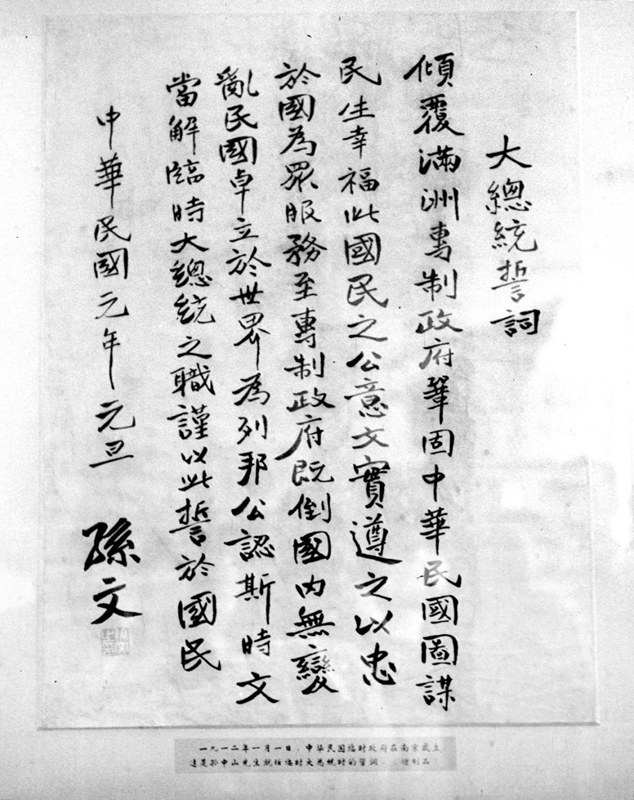 大總統誓詞
傾覆滿洲專制政府鞏固中華民國圖謀
民生幸福此國民之公意文實遵之以忠
於國為眾服務至專制政府既倒國內無變
亂民國卓立於世界為列邦公認斯時文
當解臨時大總統之職謹以此誓於國民
中華民國元年元旦
孫文
一九一二年一月一日，中华民国临时政府在南京成立
这是孙中山先生就任临时大总统时的誓词。（复制品）